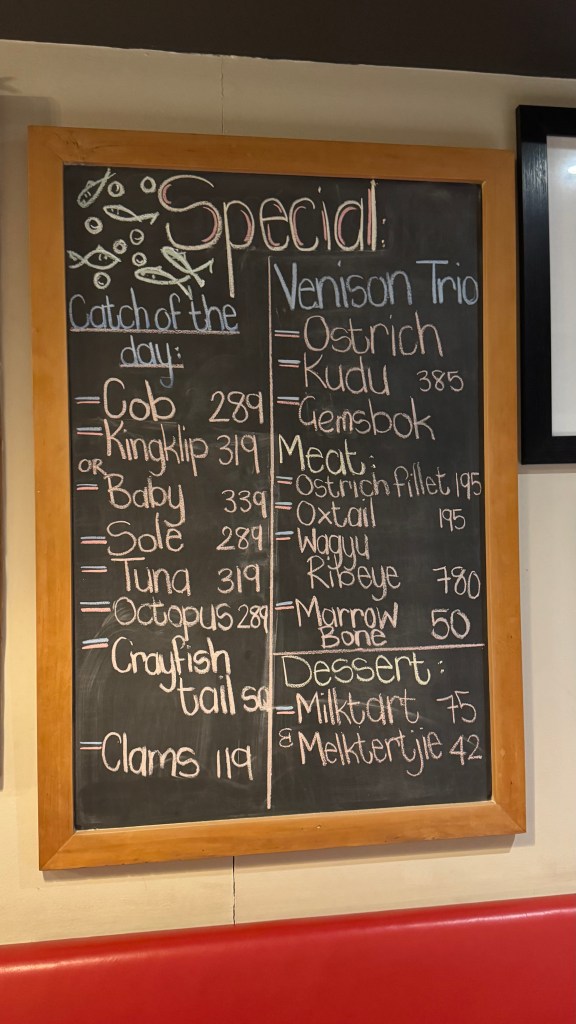 Special:
Catch of the
day:
= Cob 289
= Kingklip 319
OR
= Baby 339
= Sole 289
= Tuna 319
= Octopus 289
= Crayfish
tail SQ
= Clams 119
Venison Trio
= Ostrich
= Kudu 385
= Gemsbok
Meat:
= Ostrich fillet 195
= Oxtail 195
= Wagyu
Ribeye 780
= Marrow
Bone 50
Dessert:
= Milktart 75
& Melktertjie 42